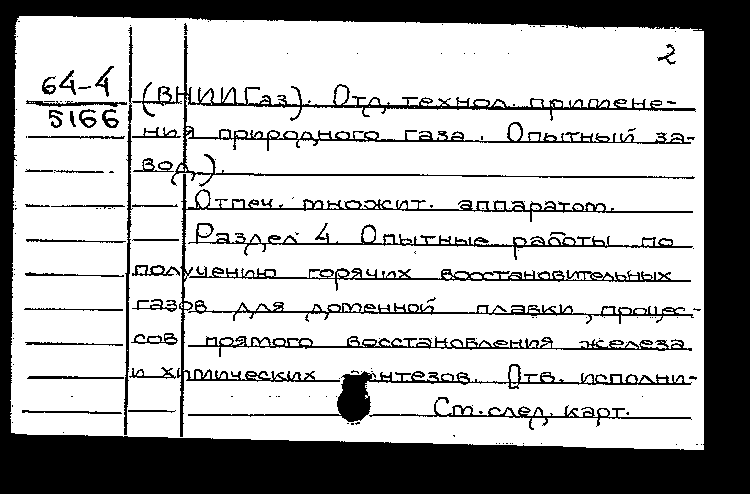 2
64-4
5166
(ВНИИГаз). Отд. технол. примене-
ния природного газа. Опытный за-
вод.).
Отпеч. множит. аппаратом.
Раздел 4. Опытные работы по
получению горячих восстановительных
газов для доменной плавки, процес-
сов прямого восстановления железа
и химических синтезов. Отв. исполни-
См. след. карт.